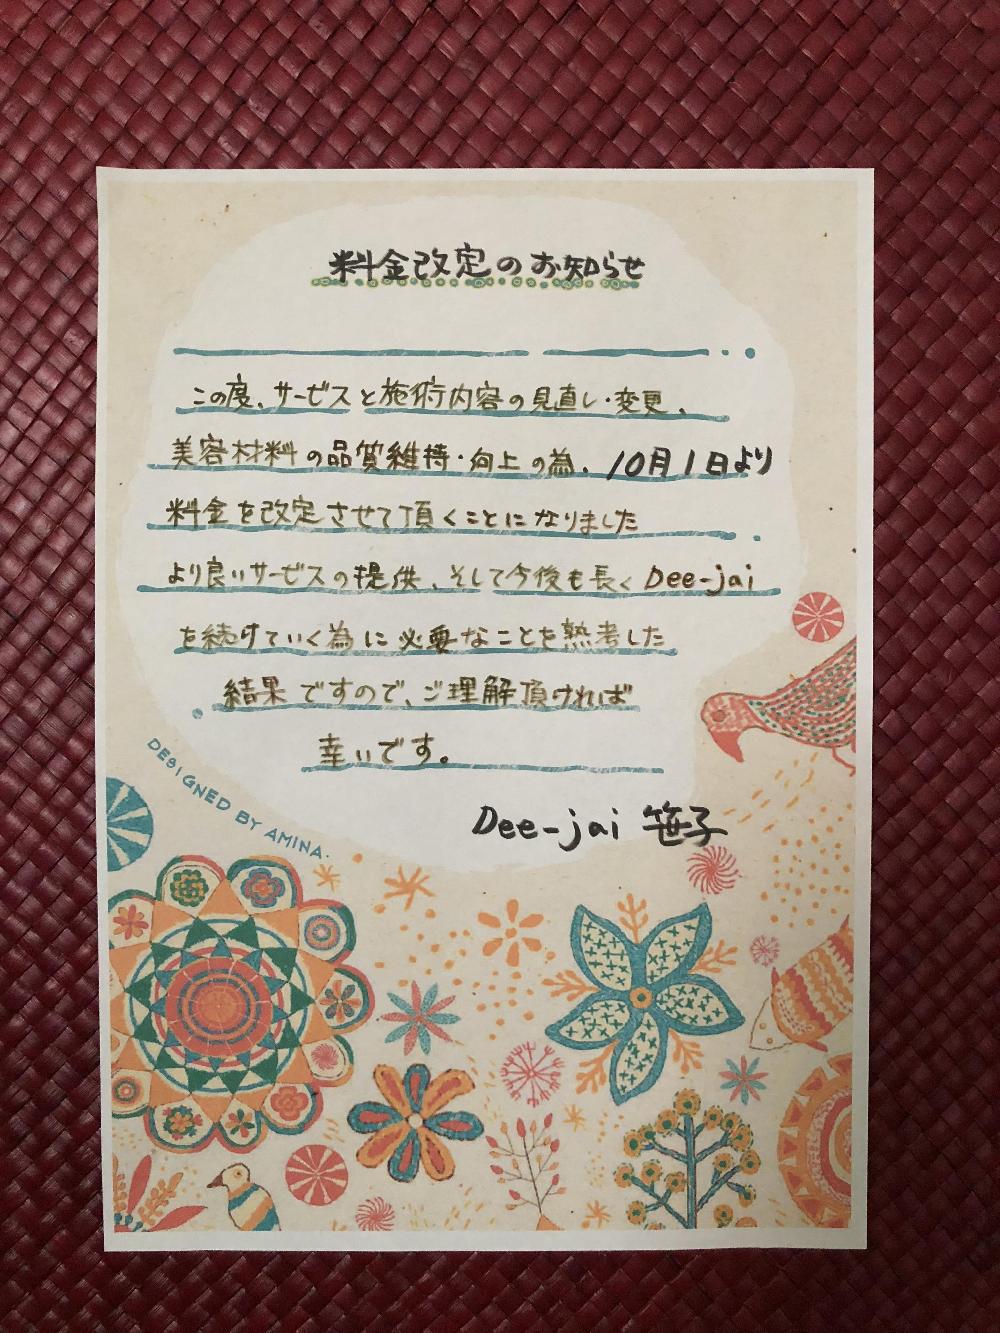 料金改定のお知らせ
この度、サービスと施術内容の見直し・変更、
美容材料の品質維持・向上の為、10月1日より
料金を改定させて頂くことになりました
より良いサービスの提供、そして今後も長くDee-jai
を続けていく為に必要なことを熟考した
結果ですので、ご理解頂ければ
幸いです。
Dee-jai 笹子
DESIGNED BY AMINA.